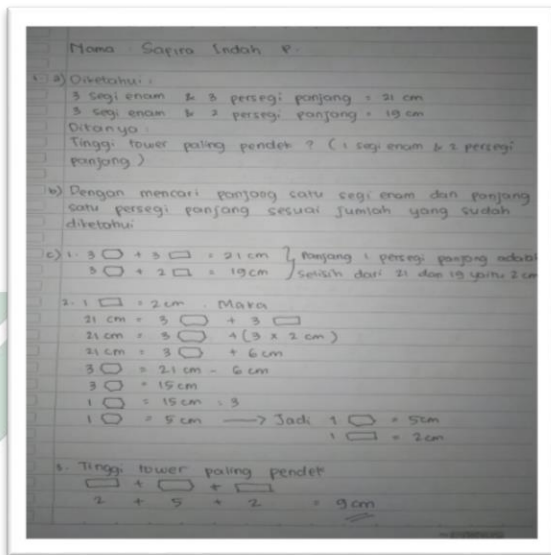 Nama : Sapira Indah P.
1. a) Diketahui :
3 segi enam & 3 persegi panjang = 21 cm
3 segi enam & 2 persegi panjang = 19 cm
Ditanya :
Tinggi tower paling pendek ? (1 segi enam & 2 persegi
panjang)
b) Dengan mencari panjang satu segi enam dan panjang
satu persegi panjang sesuai jumlah yang sudah
diketahui
c) 1. 3 ⬡ + 3 ▭ = 21 cm } panjang 1 persegi panjang adalah
3 ⬡ + 2 ▭ = 19 cm } selisih dari 21 dan 19 yaitu 2 cm
2. 1 ▭ = 2 cm . Maka
21 cm = 3 ⬡ + 3 ▭
21 cm = 3 ⬡ + (3 x 2 cm)
21 cm = 3 ⬡ + 6 cm
3 ⬡ = 21 cm - 6 cm
3 ⬡ = 15 cm
1 ⬡ = 15 cm : 3
1 ⬡ = 5 cm → Jadi 1 ⬡ = 5cm
1 ▭ = 2cm
3. Tinggi tower paling pendek
▭ + ⬡ + ▭
2 + 5 + 2 = 9 cm